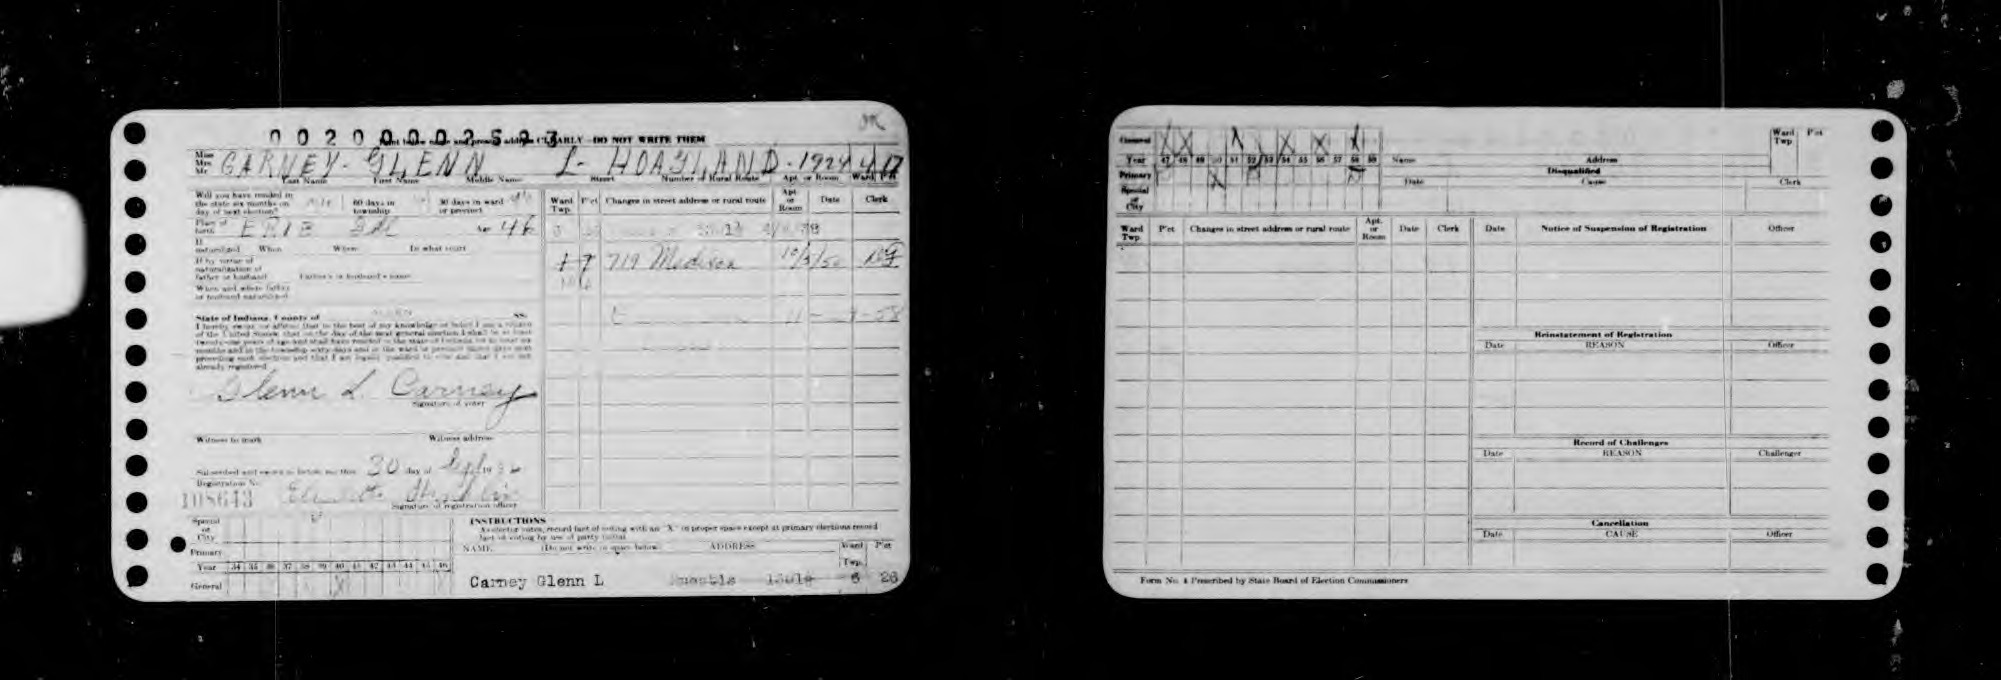 0020000 2597
Print below name and present address CLEARLY - DO NOT WRITE THEM
OK
Miss
Mrs.
Mr. CARNEY - GLENN L - HOAGLAND - 1924 4 17
Last Name First Name Middle Name Street Number of Rural Route Apt. or Room Ward P'ct
Will you have resided in the state six months on day of next election? 60 days in township 30 days in ward or precinct
Place of birth ERIE Age 46
If naturalized When Where In what court
If by virtue of naturalization of father or husband Father's or husband's name
When and where father or husband naturalized
State of Indiana, County of ss:
I hereby swear (or affirm) that to the best of my knowledge or belief I am a citizen
of the United States; that on the day of the next general election I shall be at least
twenty-one years of age and shall have resided in the state of Indiana for at least six
months and in the township sixty days and in the ward or precinct thirty days next
preceding such election and that I am legally qualified to vote and that I am not
already registered
Glenn L. Carney
Signature of voter
Witness to mark Witness address
Subscribed and sworn to before me this 30 day of Sept 19
Registration No.
108643
Signature of registration officer
Ward Twp. P'ct Changes in street address or rural route Apt. or Room Date Clerk
719 Madison 10/3/50
Special or City
Primary
Year 34 35 36 37 38 39 40 41 42 43 44 45 46
General X
INSTRUCTIONS
As elector votes, record fact of voting with an "X" in proper space except at primary elections record
fact of voting by use of party initial.
NAME (Do not write in space below) ADDRESS Ward Twp. P'ct
Carney Glenn L 6 26
General X X X X X
Year 47 48 49 50 51 52 53 54 55 56 57 58 59
Primary
Special or City
Name Address Ward Twp P'ct
Disqualified
Date Cause Clerk
Ward Twp. P'ct Changes in street address or rural route Apt. or Room Date Clerk
Date Notice of Suspension of Registration Officer
Reinstatement of Registration
Date REASON Officer
Record of Challenges
Date REASON Challenger
Cancellation
Date CAUSE Officer
Form No. 4 Prescribed by State Board of Election Commissioners